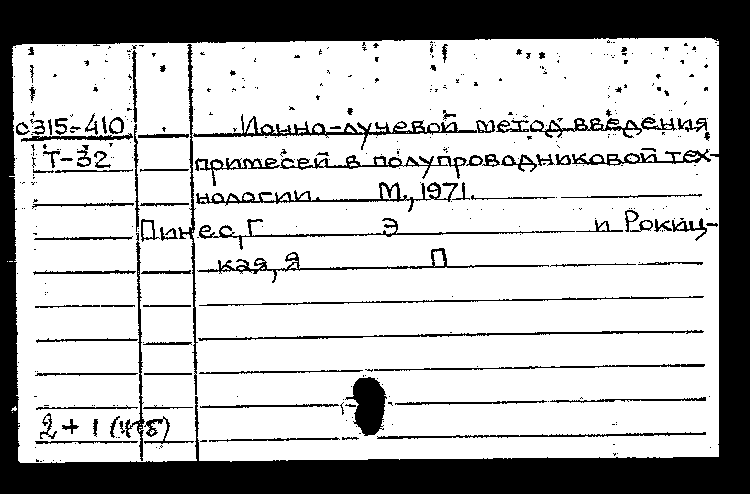 С315-410 Ионно-лучевой метод введения
Т-32 примесей в полупроводниковой тех-
нологии. М., 1971.
Пинес, Г Э и Рокиц-
кая, Я П
2 + 1 (чтб)